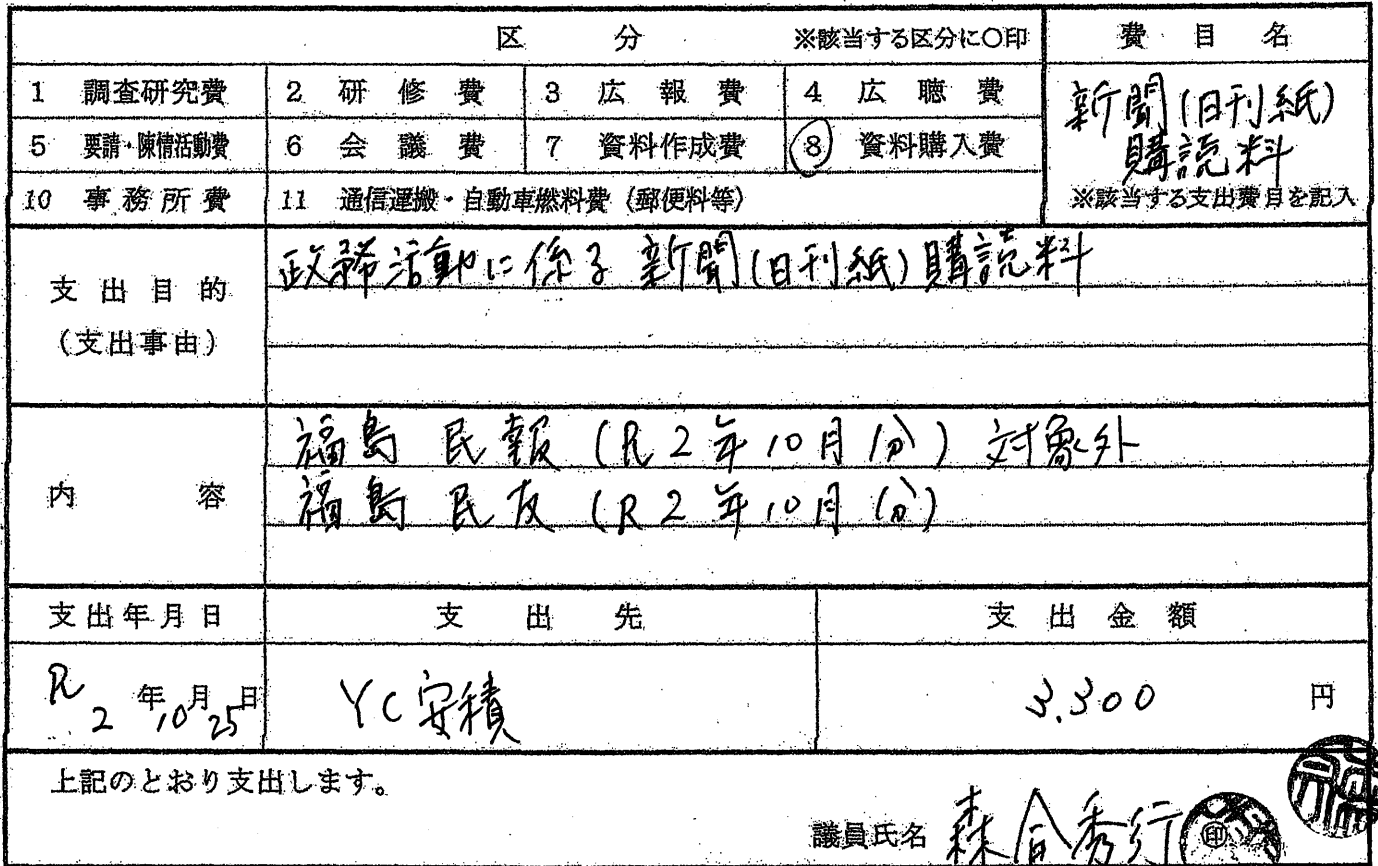 区分 ※該当する区分に○印 費目名
1 調査研究費 2 研修費 3 広報費 4 広聴費
新聞(日刊紙)
5 要請・陳情活動費 6 会議費 7 資料作成費 8 資料購入費
購読料
10 事務所費 11 通信運搬・自動車燃料費(郵便料等)
※該当する支出費目を記入
支出目的
(支出事由)
政務活動に係る新聞(日刊紙)購読料
内容
福島民報(R2年10月分)対象外
福島民友(R2年10月分)
支出年月日 支出先 支出金額
R2年10月25日 YC安積 3.300円
上記のとおり支出します。
議員氏名 森合秀行 印